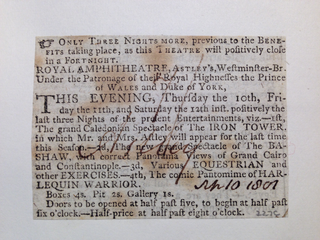 ☞ ONLY THREE NIGHTS MORE, previous to the BENE-
FITS taking place, as this THEATRE will positively close
in a FORTNIGHT.
ROYAL AMPHITHEATRE, ASTLEY's, Westminster-Br.
Under the Patronage of their Royal Highnesses the Prince
of WALES and DUKE of YORK,
THIS EVENING, Thursday the 10th, Fri-
day the 11th, and Saturday the 12th inst. positively the
last three Nights of the present Entertainments, viz.—1st,
The grand Caledonian Spectacle of The IRON TOWER,
in which Mr. and Mrs. Astley will appear for the last time
this Season—2d, The new Grand Spectacle of The BA-
SHAW, with correct Panorama Views of Grand Cairo
and Constantinople.—3d, Various EQUESTRIAN and
other EXERCISES.—4th, The comic Pantomime of HAR-
LEQUIN WARRIOR.
Sep 10 1801
Boxes 4s. Pit 2s. Gallery 1s.
Doors to be opened at half past five, to begin at half past
six o'clock.—Half-price at half past eight o'clock.